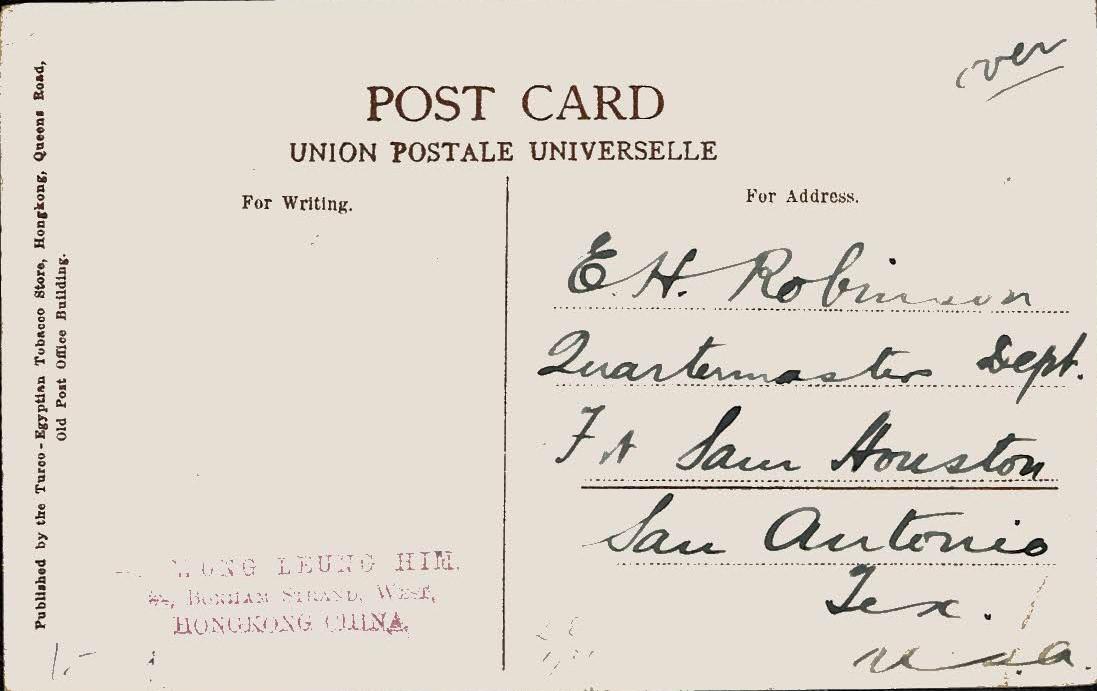 over
POST CARD
UNION POSTALE UNIVERSELLE
For Writing.
For Address.
Published by the Turco-Egyptian Tobacco Store, Hongkong, Queens Road,
Old Post Office Building.
E. H. Robinson
Quartermasters Dept.
Ft Sam Houston
San Antonio
Tex.
U.S.A.
WONG LEUNG HIM.
BONHAM STRAND, WEST,
HONGKONG CHINA.